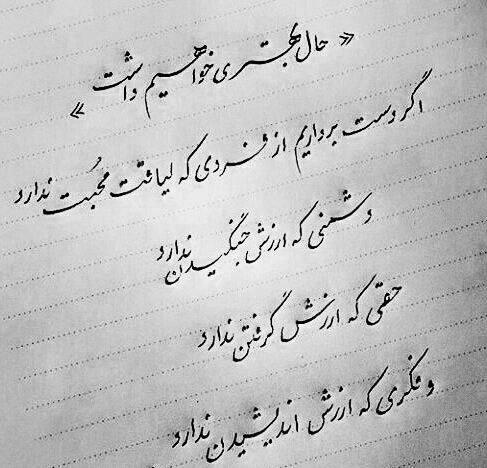 « حال بهتری خواهیم داشت »
اگر دست برداریم از فردی که لیاقت محبت ندارد
دشمنی که ارزش جنگیدن ندارد
حقی که ارزش گرفتن ندارد
و فکری که ارزش اندیشیدن ندارد